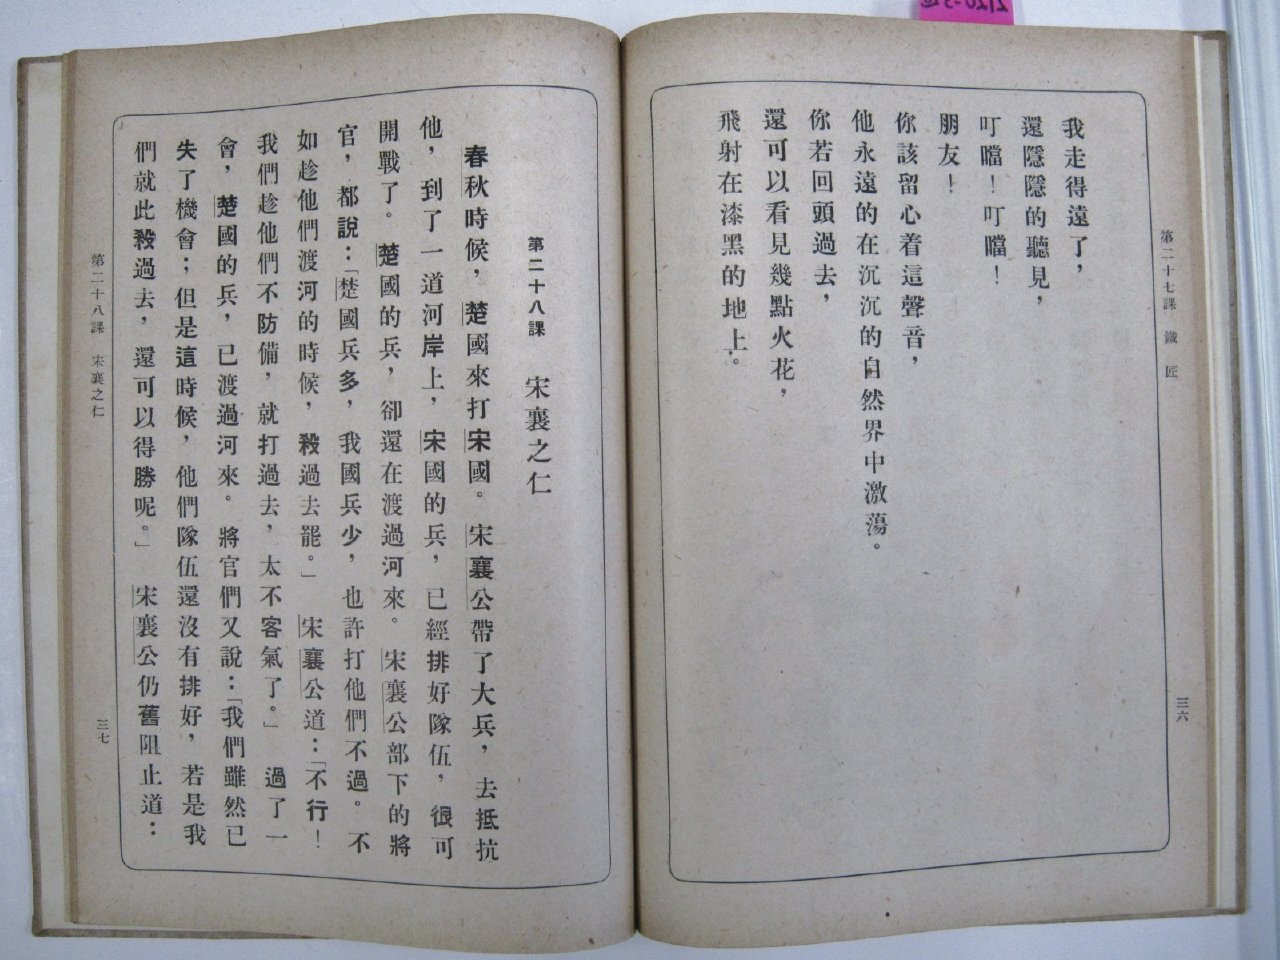 第二十七課　鐵匠
三六
我走得遠了，
還隱隱的聽見，
叮噹！叮噹！
朋友！
你該留心着這聲音，
他永遠的在沉沉的自然界中激蕩。
你若回頭過去，
還可以看見幾點火花，
飛射在漆黑的地上。
第二十八課　宋襄之仁
春秋時候，楚國來打宋國。宋襄公帶了大兵，去抵抗
他，到了一道河岸上，宋國的兵，已經排好隊伍，很可
開戰了。楚國的兵，卻還在渡過河來。宋襄公部下的將
官，都說：「楚國兵多，我國兵少，也許打他們不過。不
如趁他們渡河的時候，殺過去罷。」宋襄公道：「不行！
我們趁他們不防備，就打過去，太不客氣了。」過了一
會，楚國的兵，已渡過河來。將官們又說：「我們雖然已
失了機會；但是這時候，他們隊伍還沒有排好，若是我
們就此殺過去，還可以得勝呢。」宋襄公仍舊阻止道：
第二十八課　宋襄之仁
三七